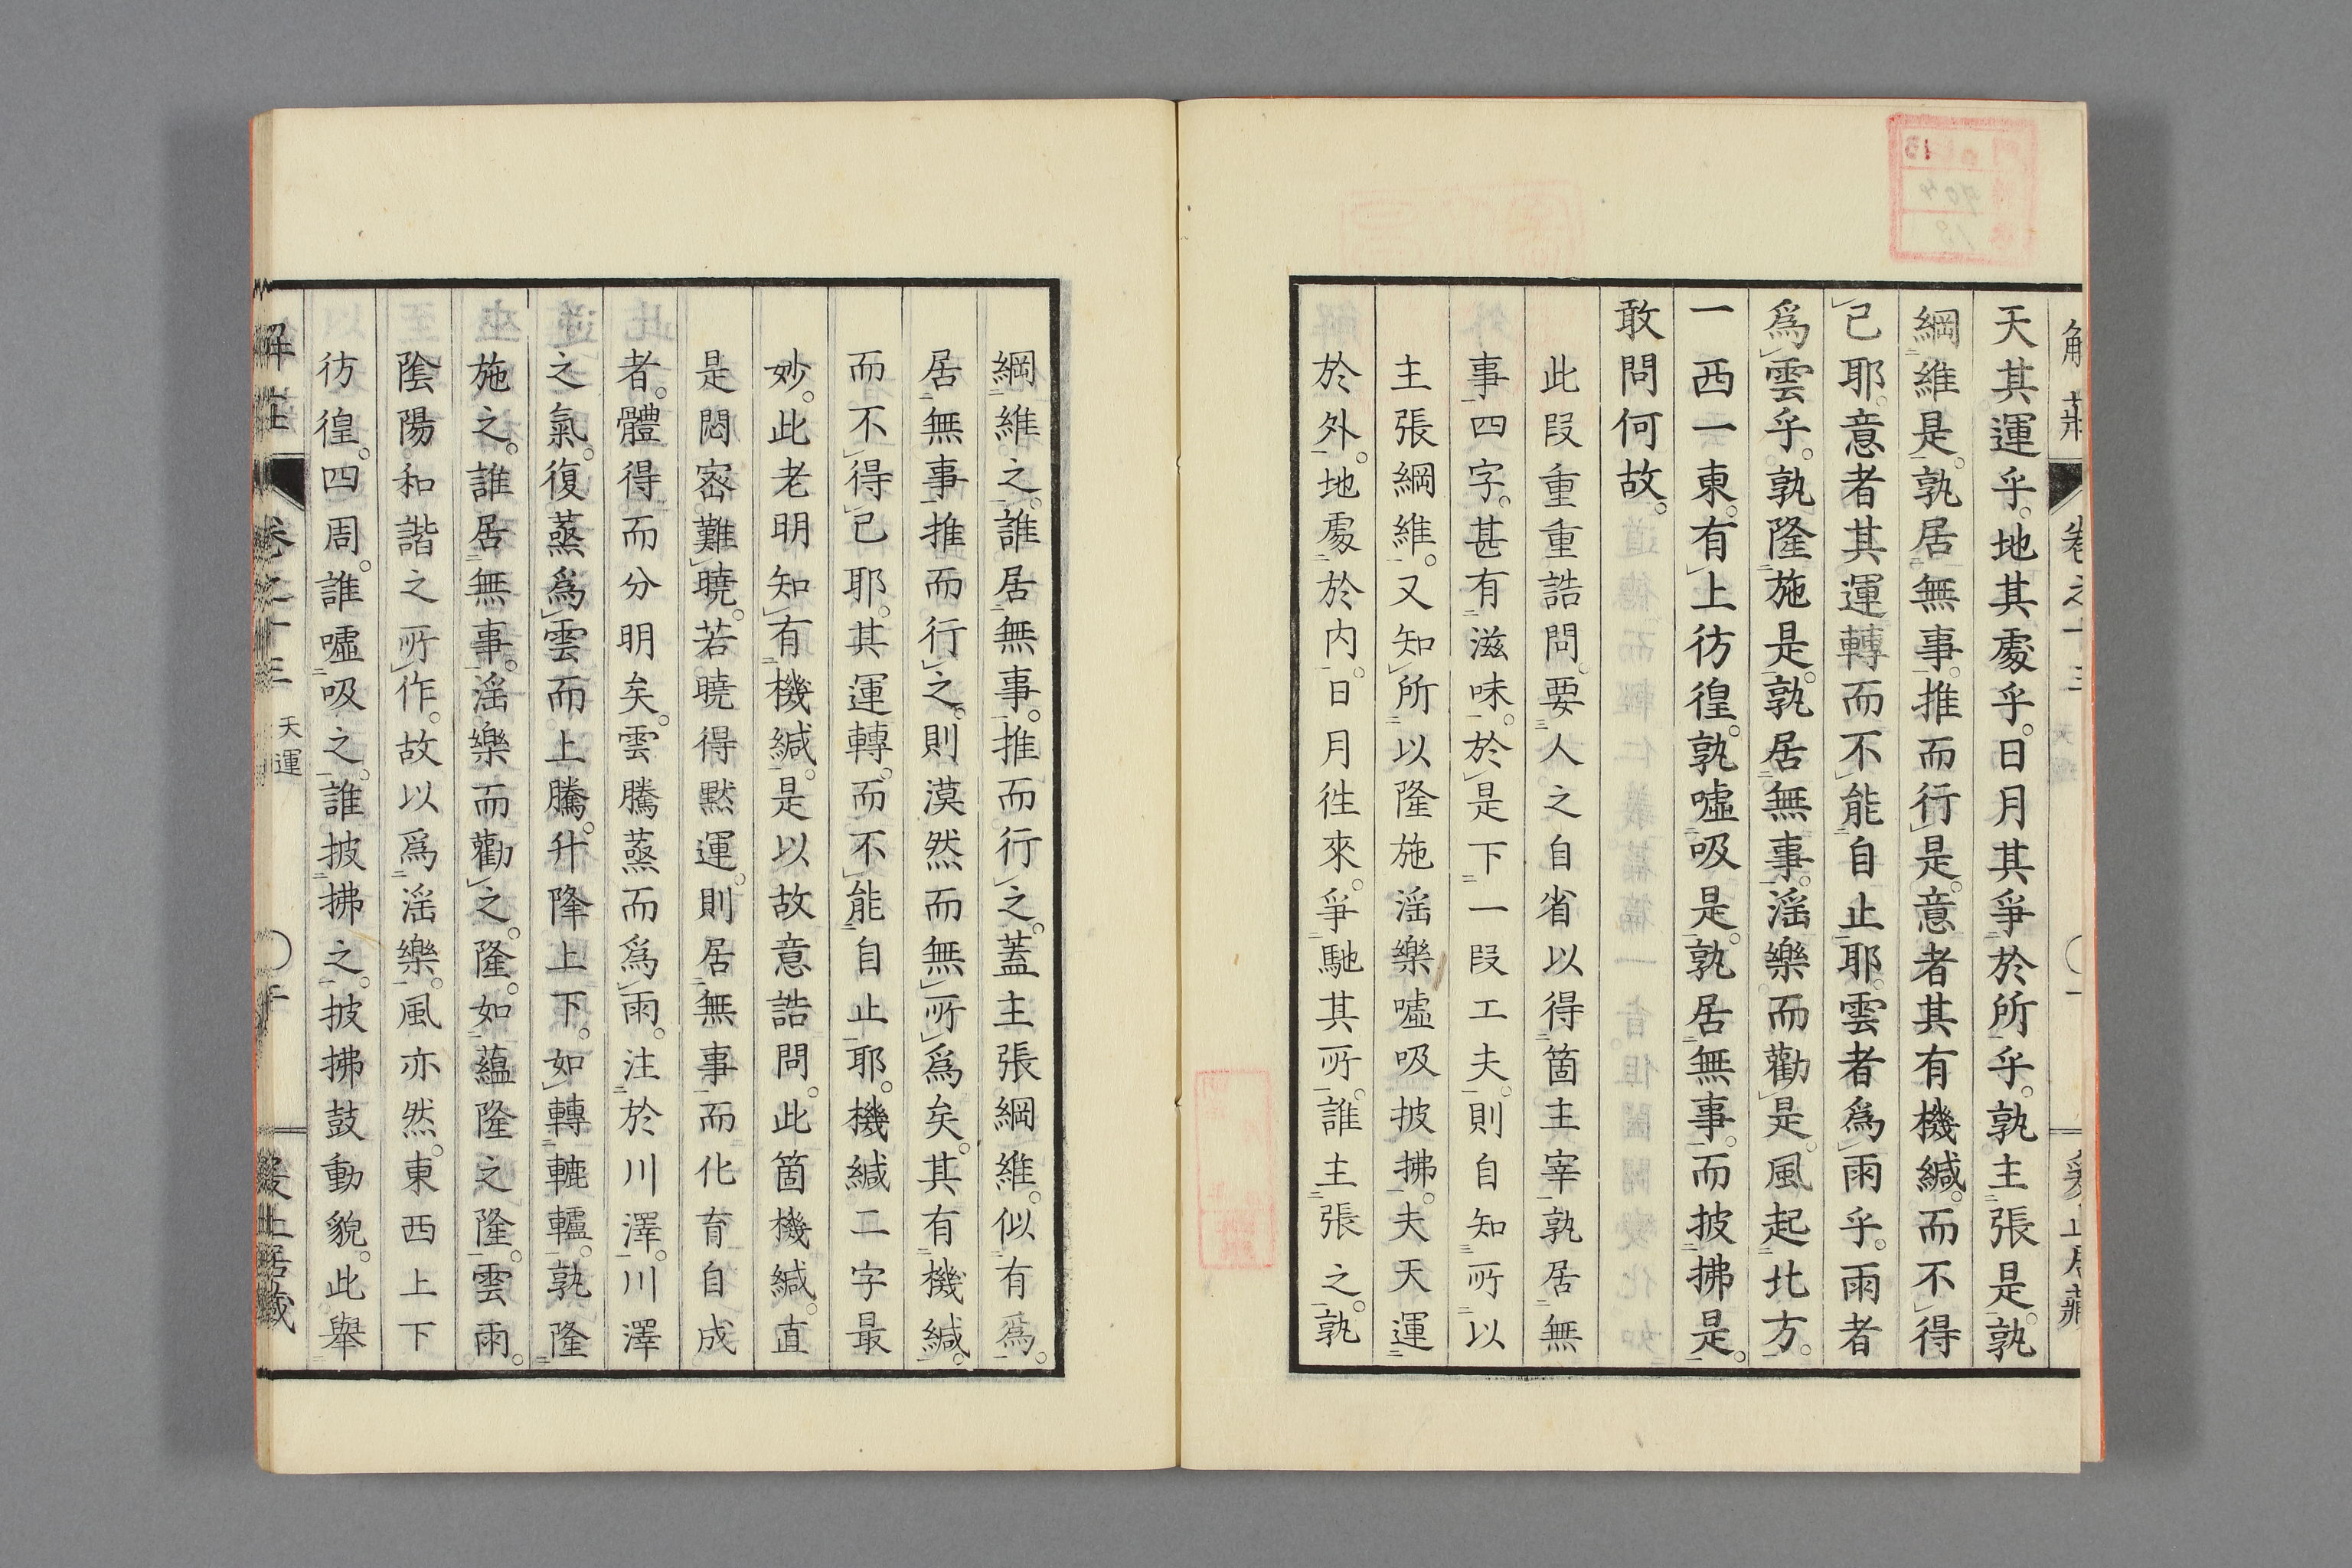 天其運乎。地其處乎。日月其爭於所乎。孰主張是。孰
綱維是。孰居無事。推而行是。意者其有機緘。而不得
已耶。意者其運轉而不能自止耶。雲者爲雨乎。雨者
爲雲乎。孰隆施是。孰居無事。淫樂而勸是。風起北方。
一西一東。有上彷徨。孰噓吸是。孰居無事。而披拂是。
敢問何故。
此段重重詰問。要人之自省以得箇主宰孰居無
事四字。甚有滋味。於是下一段工夫。則自知所以
主張綱維。又知所以隆施淫樂噓吸披拂。夫天運
於外。地處於内。日月徃來。爭馳其所。誰主張之。孰
綱維之。誰居無事。推而行之。蓋主張綱維。似有爲。
居無事推而行之。則漠然而無所爲矣。其有機緘。
而不得已耶。其運轉。而不能自止耶。機緘二字最
妙。此老明知有機緘。是以故意詰問。此箇機緘。直
是悶密難曉。若曉得默運。則居無事而化育自成
者。體得而分明矣。雲騰蒸而爲雨。注於川澤。川澤
之氣。復蒸爲雲而上騰。升降上下。如轉轆轤。孰隆
施之。誰居無事。淫樂而勸之。隆。如蘊隆之隆。雲雨。
陰陽和諧之所作。故以爲淫樂。風亦然。東西上下
彷徨。四周。誰噓吸之。誰披拂之。披拂鼓動貌。此舉
解莊 卷之十三 天運